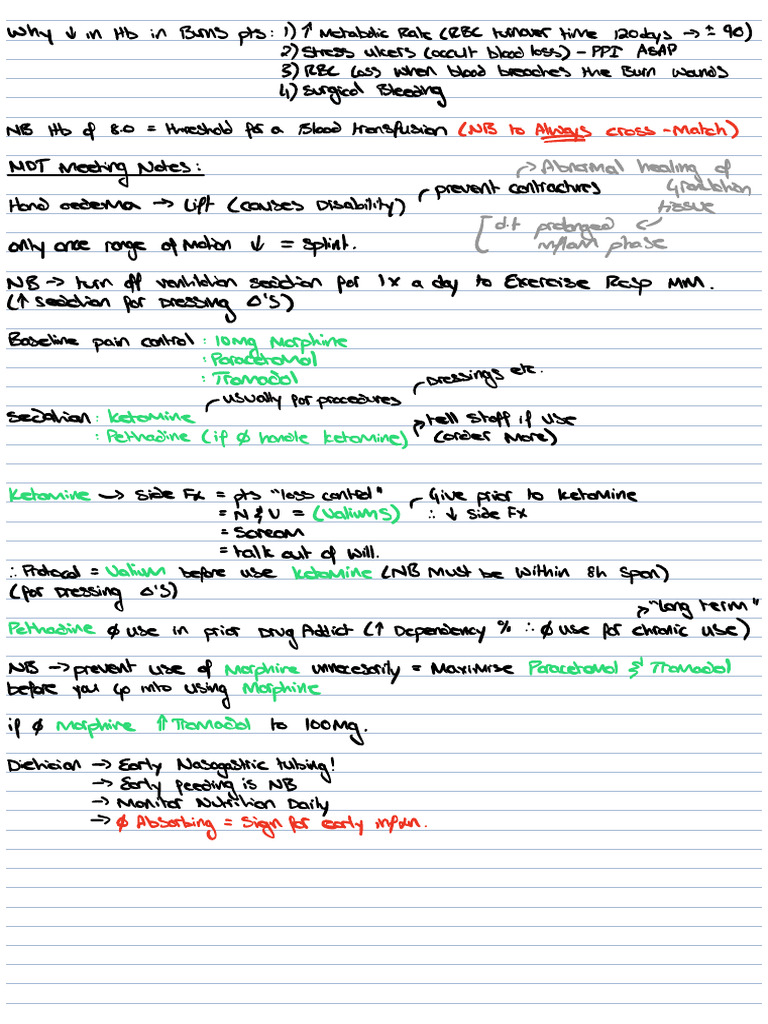 Why ↓ in Hb in Burns pts: 1) ↑ Metabolic Rate (RBC turnover time 120days → ± 90)
2) Stress ulcers (occult blood loss) - PPI ASAP
3) RBC loss when blood breaches the Burn wounds
4) Surgical Bleeding
NB Hb of 8.0 = threshold for a Blood transfusion (NB to Always cross-Match)
MDT Meeting Notes:
↳ Abnormal healing of Granulation tissue
Hand oedema → Lift (causes Disability) prevent contractures
[d.t prolonged inflam phase
only once range of Motion ↓ = splint.
NB → turn off ventilation sedation for 1x a day to Exercise Resp MM.
(↑ sedation for Dressing Δ'S)
Baseline pain control : 10mg Morphine
: Paracetamol
: Tramadol
usually for procedures Dressings etc.
Sedation : Ketamine
: Pethadine (if ∅ handle ketamine) tell staff if use (order More)
Ketamine → Side Fx = pts "loss control" Give prior to ketamine
= N & V = (Valiums) ∴ ↓ side Fx
= Scream
= talk out of will.
∴ Protocol = Valium before use ketamine (NB Must be within 8h span)
(for Dressing Δ'S)
"long term"
Pethadine ∅ use in prior Drug Addict (↑ Dependency % ∴ ∅ use for chronic use)
NB → prevent use of Morphine unnecesarily = Maximise Paracetamol & Tramadol
before you go into using Morphine
if ∅ Morphine ⇑ Tramadol to 100mg.
Dietician → Early Nasogastric tubing!
→ Early feeding is NB
→ Monitor Nutrition Daily
→ ∅ Absorbing = Sign for early infxn.